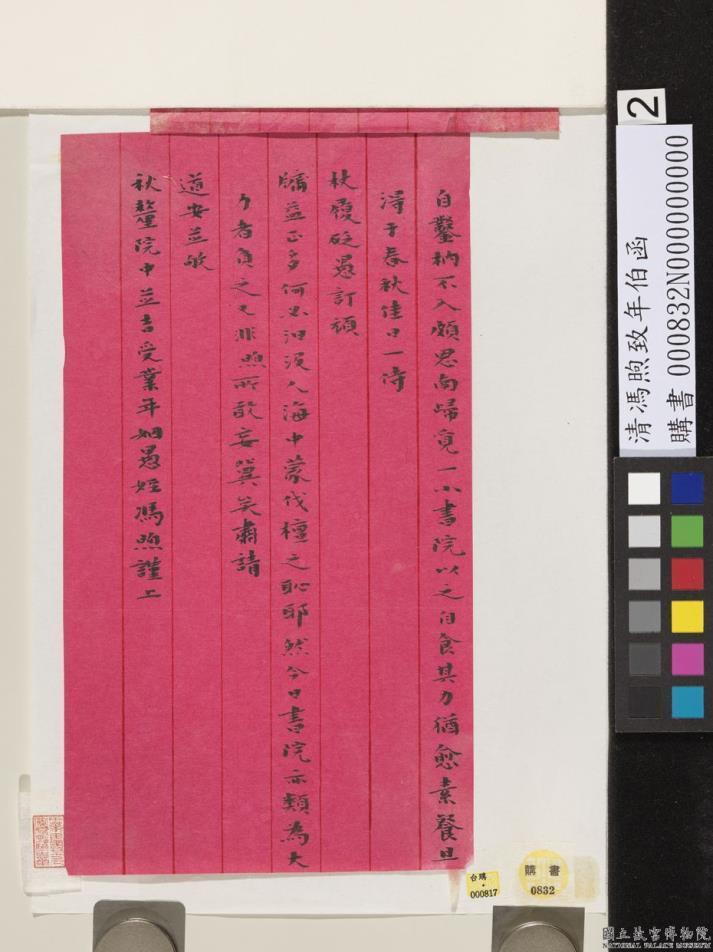 自鑿枘不入頗思南歸覓一小書院以之自食其力猶愈素餐且
得于春秋佳日一侍
杖履砭愚訂頑
牖益正多何必汩沒人海中蒙伐檀之恥耶然今日書院亦類為大
力者負之又非煦所敢妄冀矣肅請
道安並敬
秋釐院中並吉受業年姻愚姪馮煦謹上
2
清馮煦致年伯函
購書 000832N0000000000
台購
000817
購書
0832
國立故宮博物院
NATIONAL PALACE MUSEUM